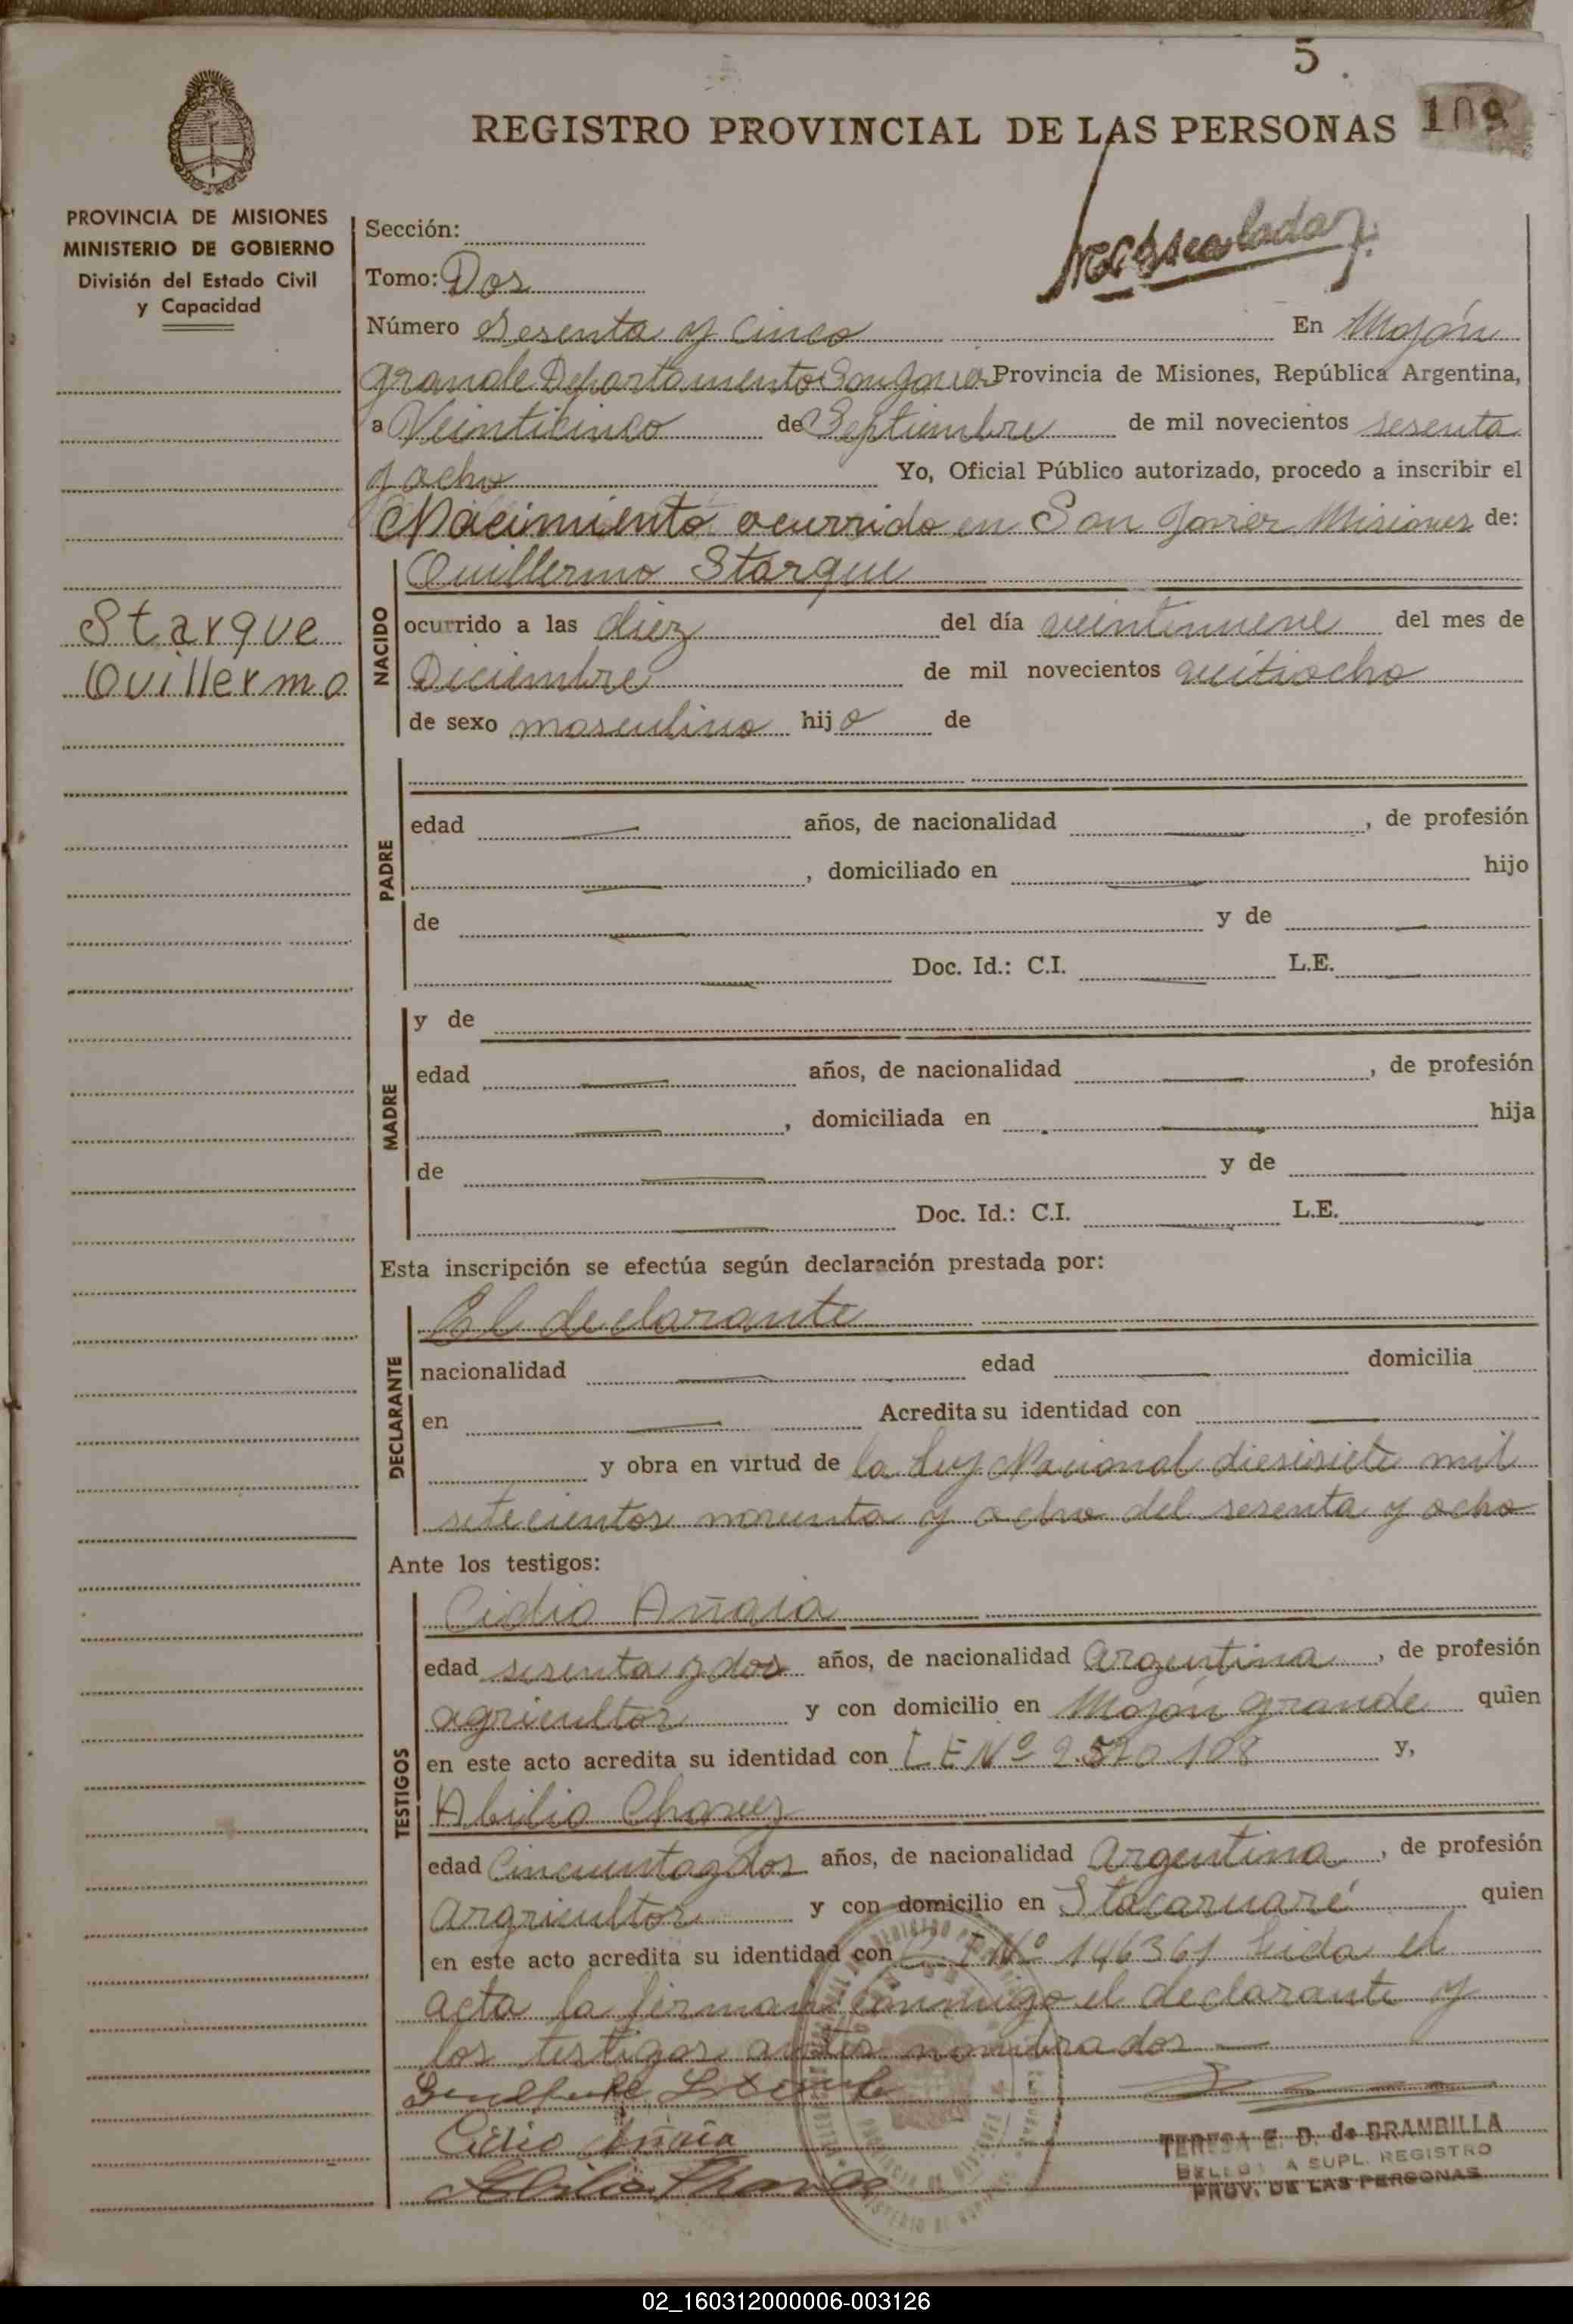 5
REGISTRO PROVINCIAL DE LAS PERSONAS 109
PROVINCIA DE MISIONES
MINISTERIO DE GOBIERNO
División del Estado Civil
y Capacidad
Sección:
Tomo: Dos
Número Sesenta y Cinco En Mojón
grande Departamento San Javier Provincia de Misiones, República Argentina,
a Veinticinco de Septiembre de mil novecientos sesenta
y ocho Yo, Oficial Público autorizado, procedo a inscribir el
Nacimiento ocurrido en San Javier Misiones de:
Starque
Guillermo
NACIDO
Guillermo Starque
ocurrido a las diez del día veintinueve del mes de
Diciembre de mil novecientos veitiocho
de sexo masculino hijo de
PADRE
edad años, de nacionalidad , de profesión
, domiciliado en hijo
de y de
Doc. Id.: C.I. L.E.
MADRE
y de
edad años, de nacionalidad , de profesión
, domiciliada en hija
de y de
Doc. Id.: C.I. L.E.
Esta inscripción se efectúa según declaración prestada por:
DECLARANTE
El declarante
nacionalidad edad domicilia
en Acredita su identidad con
y obra en virtud de la Ley Nacional diesisiete mil
setecientos noventa y ocho del sesenta y ocho
Ante los testigos:
TESTIGOS
Cidio
edad sesenta y dos años, de nacionalidad Argentina, de profesión
agricultor y con domicilio en Mojón grande quien
en este acto acredita su identidad con L E Nº 2.570.108 y,
Abilio Chavez
edad Cincuenta y dos años, de nacionalidad Argentina, de profesión
Argricultor y con domicilio en Itacaruaré quien
en este acto acredita su identidad con C. I Nº 146361 Leida el
acta la firman conmigo el declarante y
los testigos antes nombrados
Cidio
TERESA E. D. de BRAMBILLA
A SUPL. REGISTRO
PROV. DE LAS PERSONAS
02_160312000006-003126